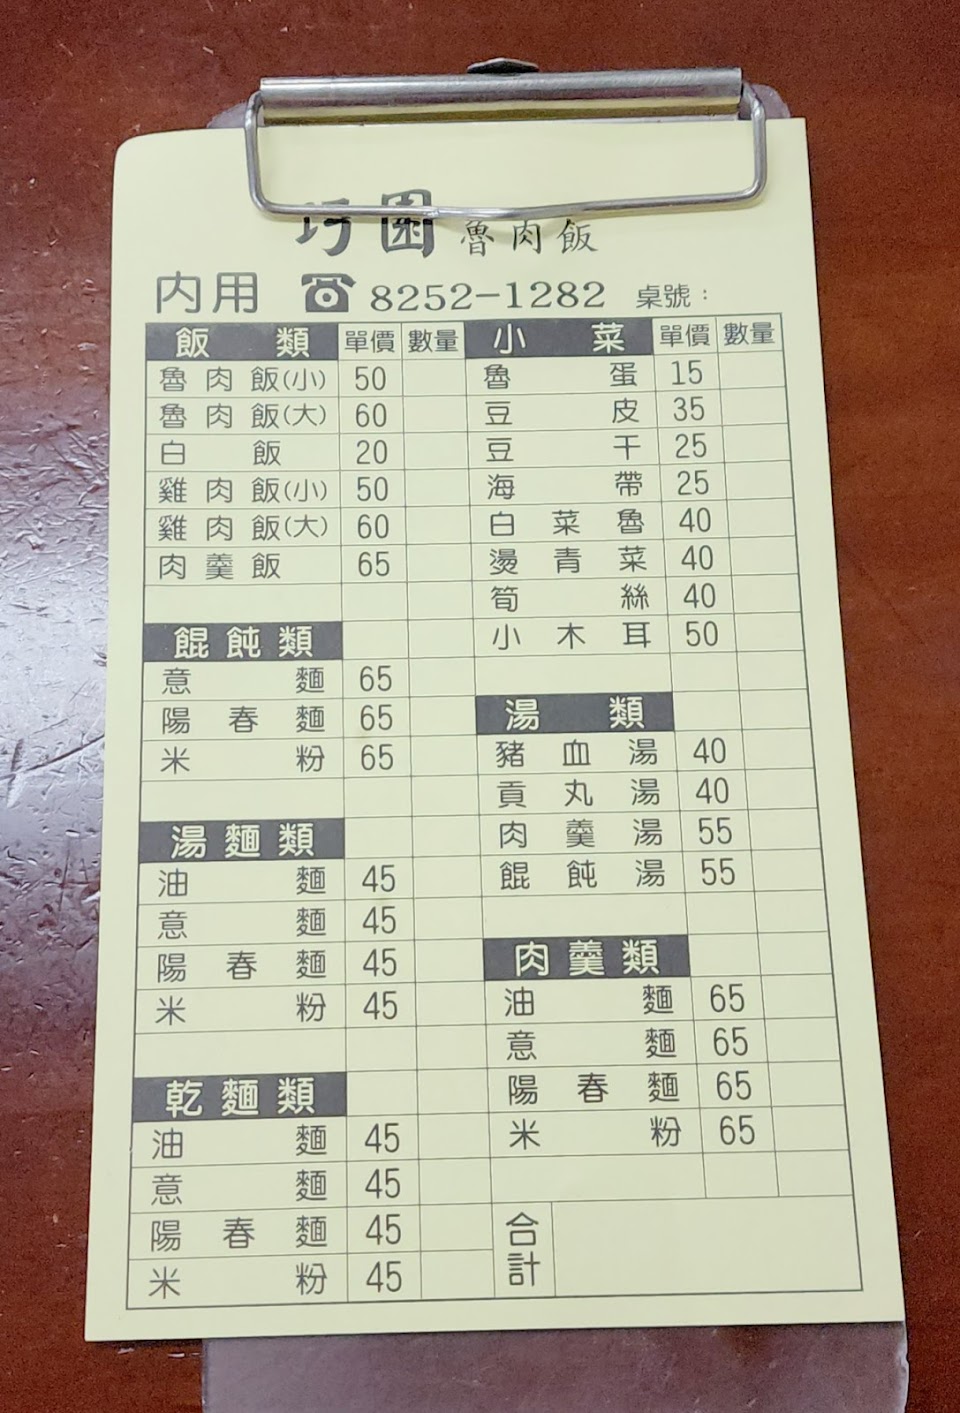 巧園 魯肉飯
內用 ☎ 8252-1282 桌號：
飯類 單價 數量
魯肉飯(小) 50
魯肉飯(大) 60
白飯 20
雞肉飯(小) 50
雞肉飯(大) 60
肉羹飯 65
餛飩類
意麵 65
陽春麵 65
米粉 65
湯麵類
油麵 45
意麵 45
陽春麵 45
米粉 45
乾麵類
油麵 45
意麵 45
陽春麵 45
米粉 45
小菜 單價 數量
魯蛋 15
豆皮 35
豆干 25
海帶 25
白菜魯 40
燙青菜 40
筍絲 40
小木耳 50
湯類
豬血湯 40
貢丸湯 40
肉羹湯 55
餛飩湯 55
肉羹類
油麵 65
意麵 65
陽春麵 65
米粉 65
合計